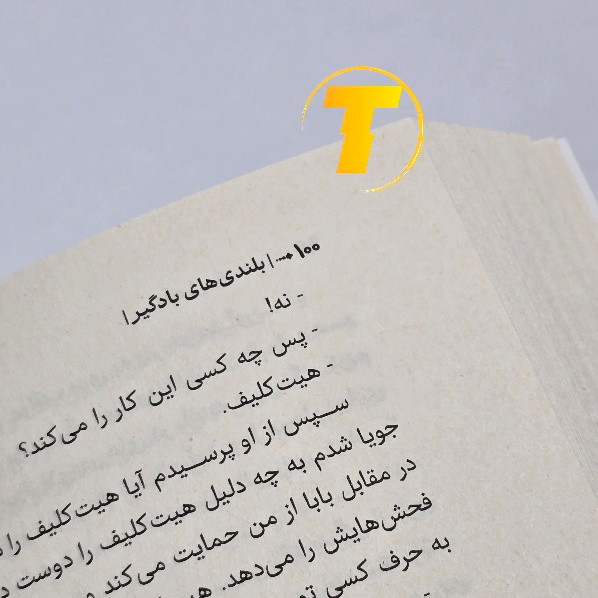 T
۱۰۰ ... | بلندی‌های بادگیر |
- نه!
- پس چه کسی این کار را می‌کند؟
- هیت‌کلیف.
سپس از او پرسیدم آیا هیت‌کلیف را
جویا شدم به چه دلیل هیت‌کلیف را دوست
در مقابل بابا از من حمایت می‌کند و
فحش‌هایش را می‌دهد.
به حرف کسی